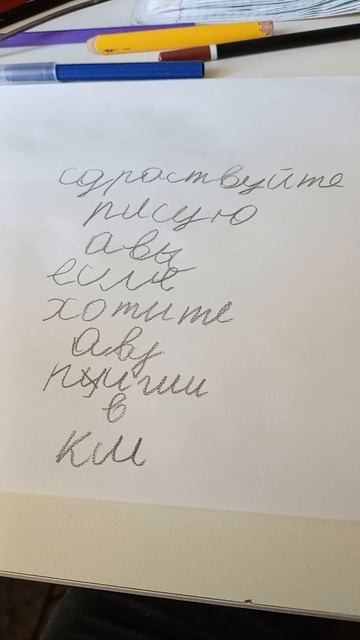 сдраствуйте
рисую
авы
если
хотите
аву
пишии
в
км